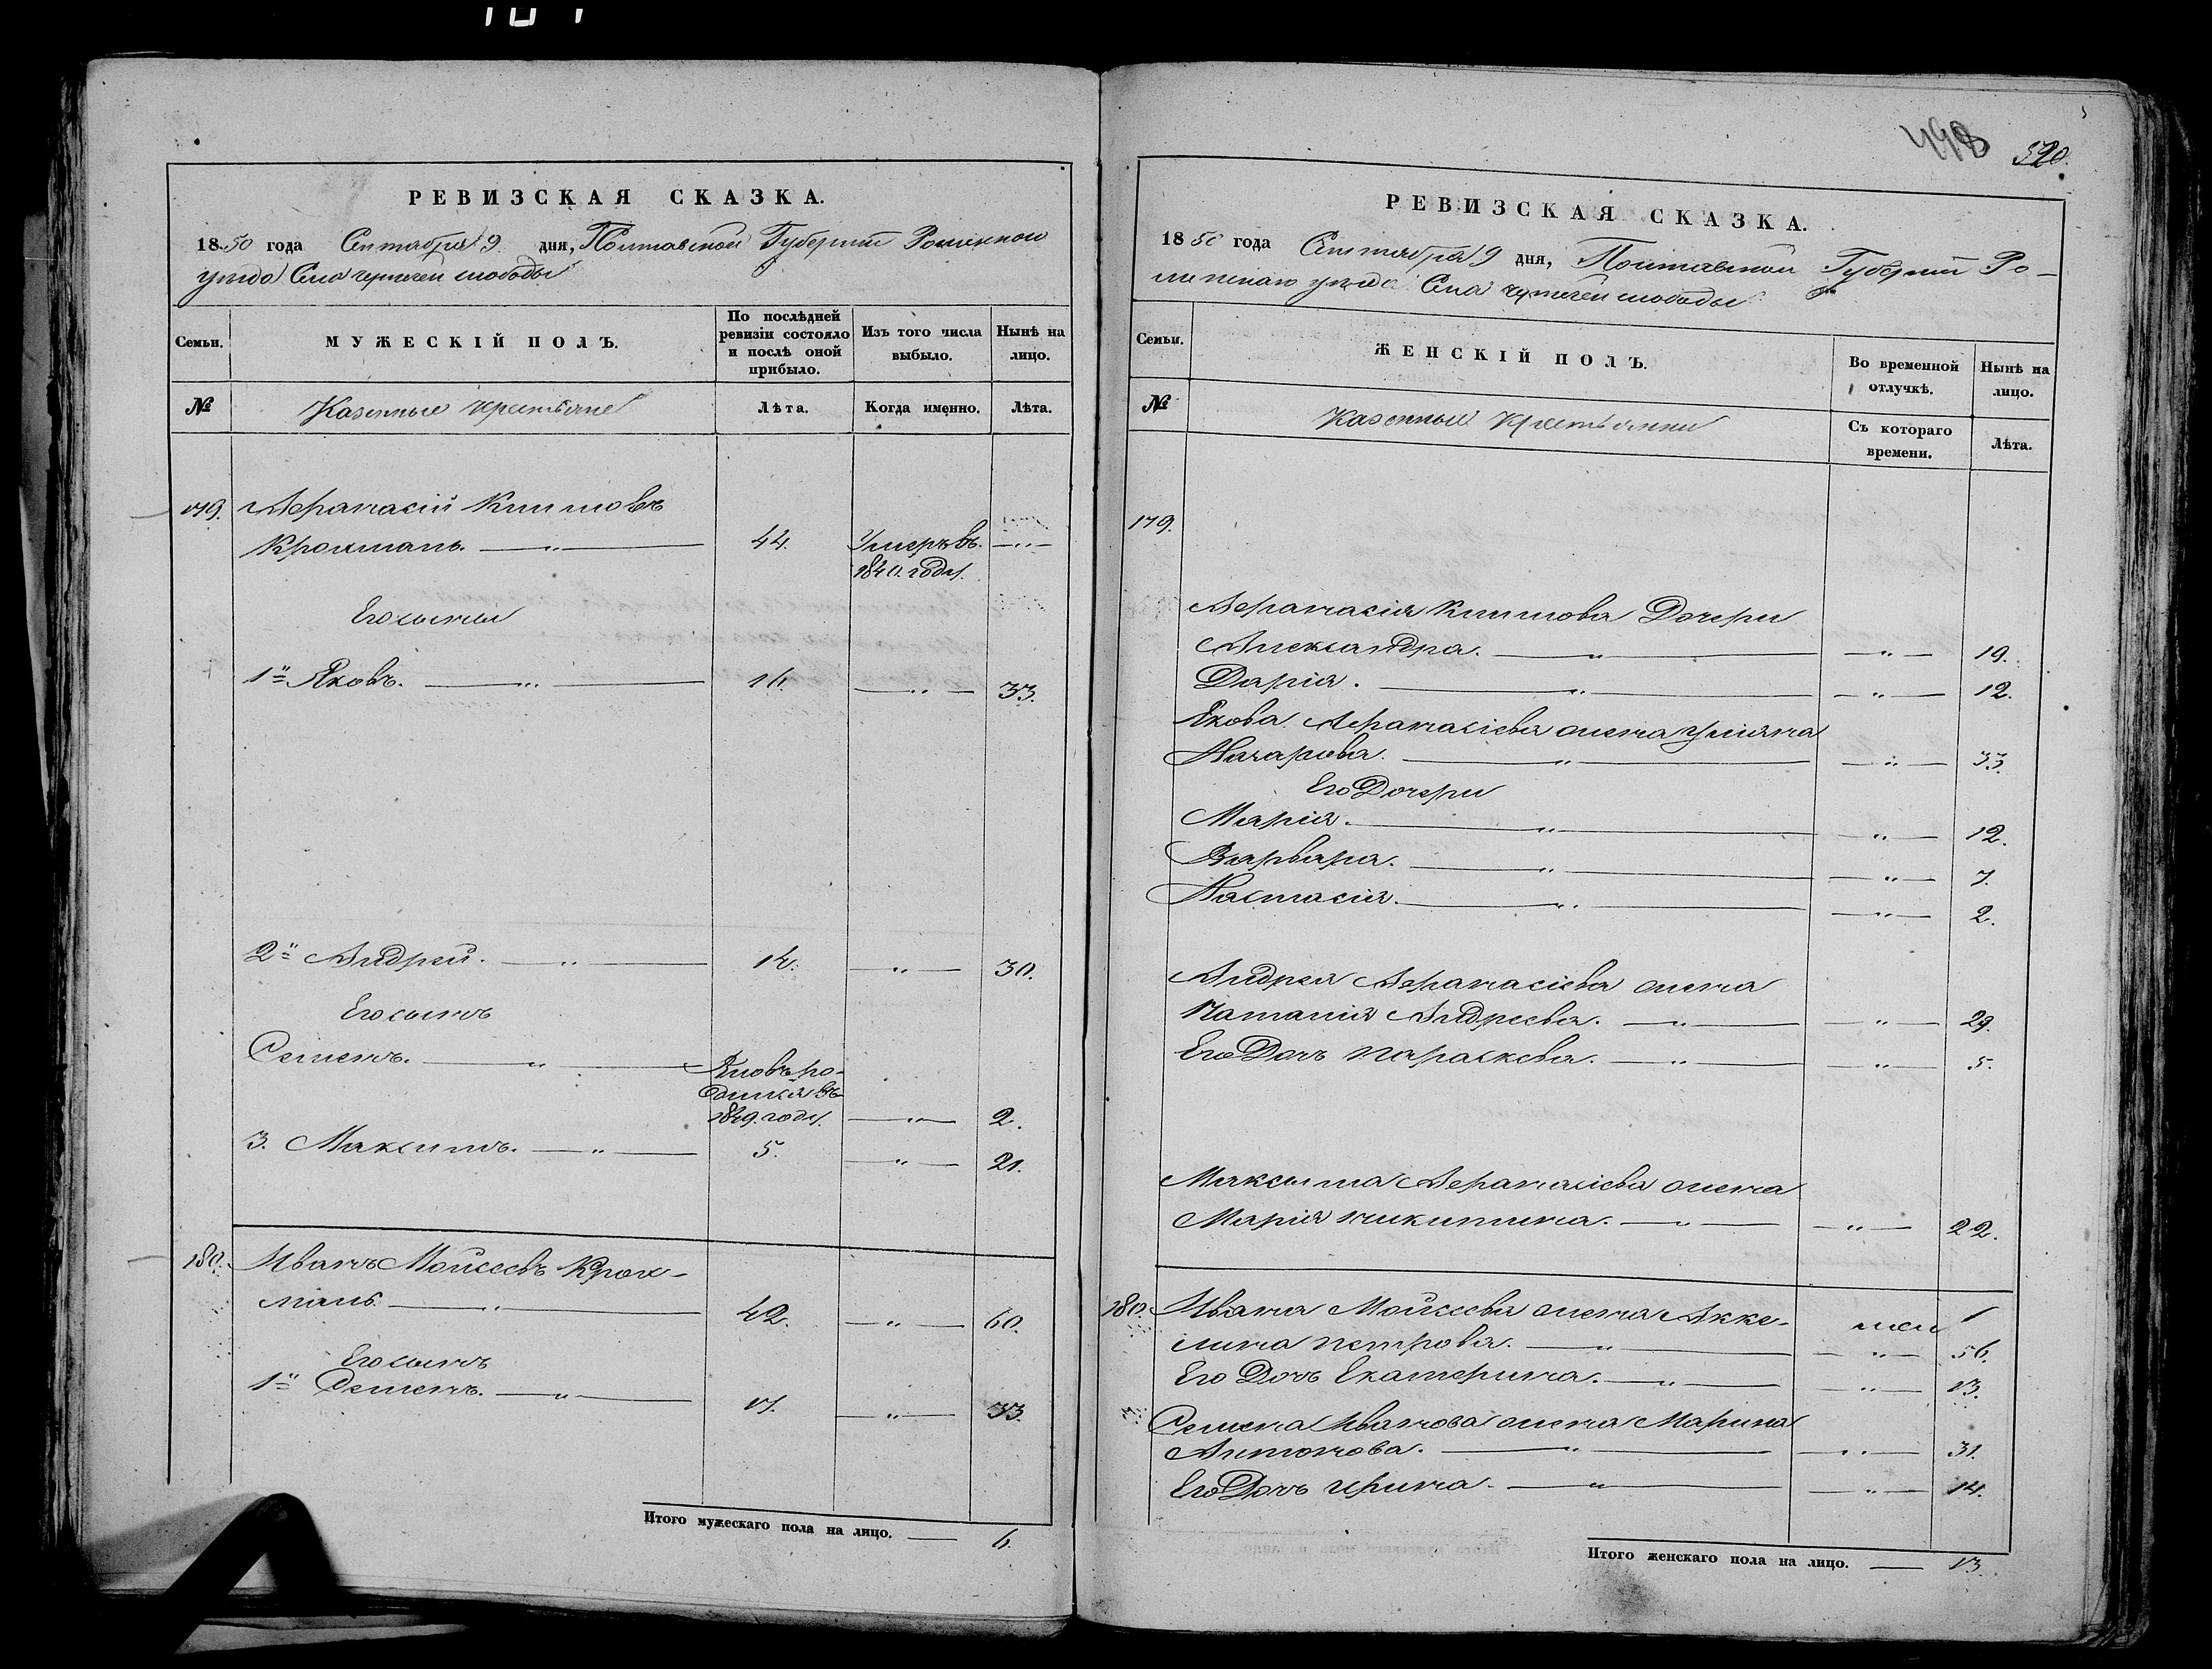 РЕВИЗСКАЯ СКАЗКА.
1850 года Сентября 9 дня, Полтавской Губерніи Роменского
уезда Села слободы
Семьи. МУЖЕСКІЙ ПОЛЪ. По послѣдней ревизіи состояло и послѣ оной прибыло. Изъ того числа выбыло. Нынѣ на лицо.
№ Казенные крестьяне Лѣта. Когда именно. Лѣта.
179. Афанасій Климовъ
Крохмаль. 44. Умеръ въ
1840. году.
Его сыны
1й Яковъ. 16. 33.
2й Андрей. 14. 30.
Его сынъ
Семенъ. Вновь ро-
дился въ
1849. году. 2.
3. Максимъ. 5. 21.
180. Иванъ Моисеевъ Крох-
маль. 42. 60.
Его сынъ
1й Семенъ. 17. 33.
Итого мужескаго пола на лицо. 6.
498 520.
РЕВИЗСКАЯ СКАЗКА.
1850 года Сентября 9 дня, Полтавской Губерніи Ро-
менского уезда Села слободы
Семьи. ЖЕНСКІЙ ПОЛЪ. Во временной отлучкѣ. Нынѣ на лицо.
№ Казенные крестьянки Съ котораго времени. Лѣта.
179.
Афанасія Климова Дочери
Александра. 19.
Дарія. 12.
Якова Афанасіева жена Уліяна
Назарова. 33.
Его Дочери
Марія. 12.
Варвара. 7.
Настасія. 2.
Андрея Афанасіева жена
Наталія Андреева. 29.
Его Дочь Параскева. 5.
Максима Афанасіева жена
Марія Никитина. 22.
180. Ивана Моисеева жена Акке-
лина Петрова. 56.
Его Дочь Екатерина. 13.
Семена Иванова жена Марина
Антонова. 31.
Его Дочь Ирина. 14.
Итого женскаго пола на лицо. 13.